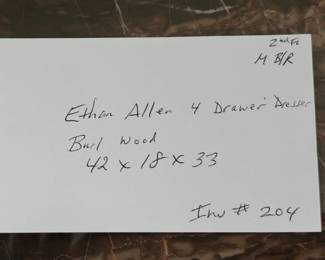 2nd Fl
M B/R
Ethan Allen 4 Drawer Dresser
Burl Wood
42 x 18 x 33
Inv # 204